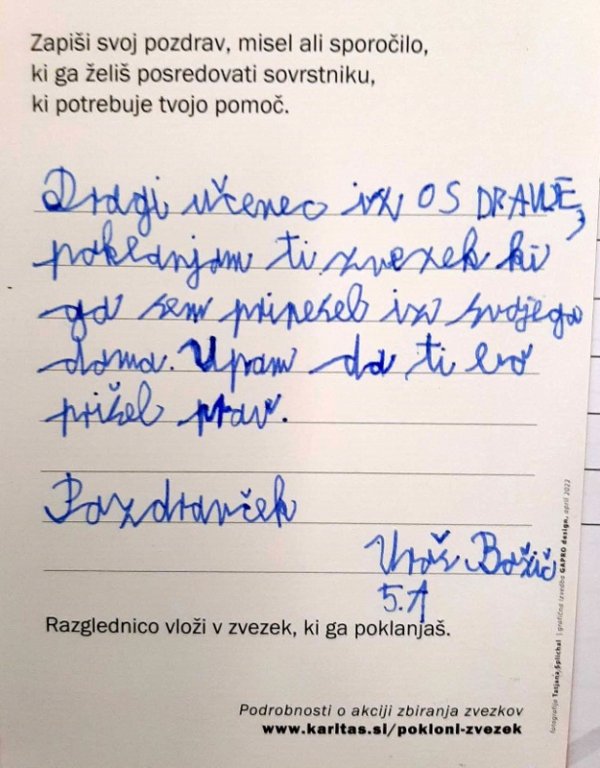 Zapiši svoj pozdrav, misel ali sporočilo,
ki ga želiš posredovati sovrstniku,
ki potrebuje tvojo pomoč.
Dragi učenec iz OS DRAVLJE,
poklanjam ti zvezek ki
ga sem prinesel iz svojega
doma. Upam da ti bo
prišel prav.
Pozdravček
Uroš Božič
5.A
Razglednico vloži v zvezek, ki ga poklanjaš.
Podrobnosti o akciji zbiranja zvezkov
www.karitas.si/pokloni-zvezek
fotografija Tatjana Splichal | grafična izvedba GAPRO design, april 2022